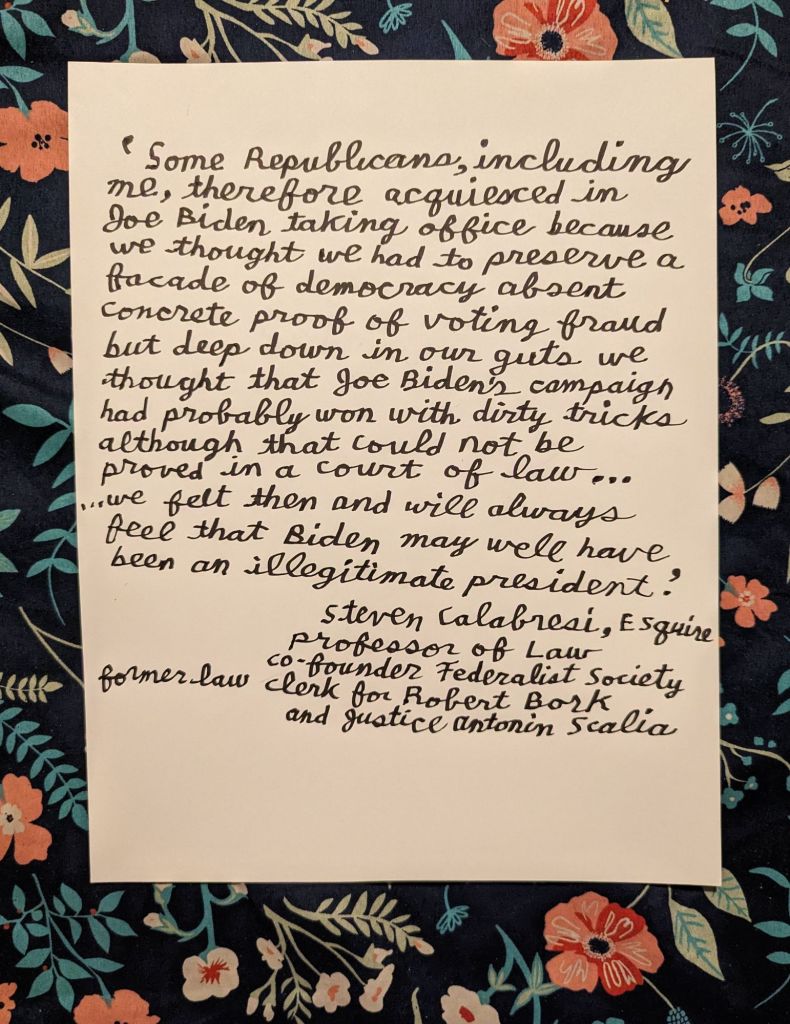 'Some Republicans, including
me, therefore acquiesced in
Joe Biden taking office because
we thought we had to preserve a
facade of democracy absent
concrete proof of voting fraud
but deep down in our guts we
thought that Joe Biden's campaign
had probably won with dirty tricks
although that could not be
proved in a court of law...
...we felt then and will always
feel that Biden may well have
been an illegitimate president.'
Steven Calabresi, Esquire
professor of Law
co-founder Federalist Society
former law clerk for Robert Bork
and Justice Antonin Scalia